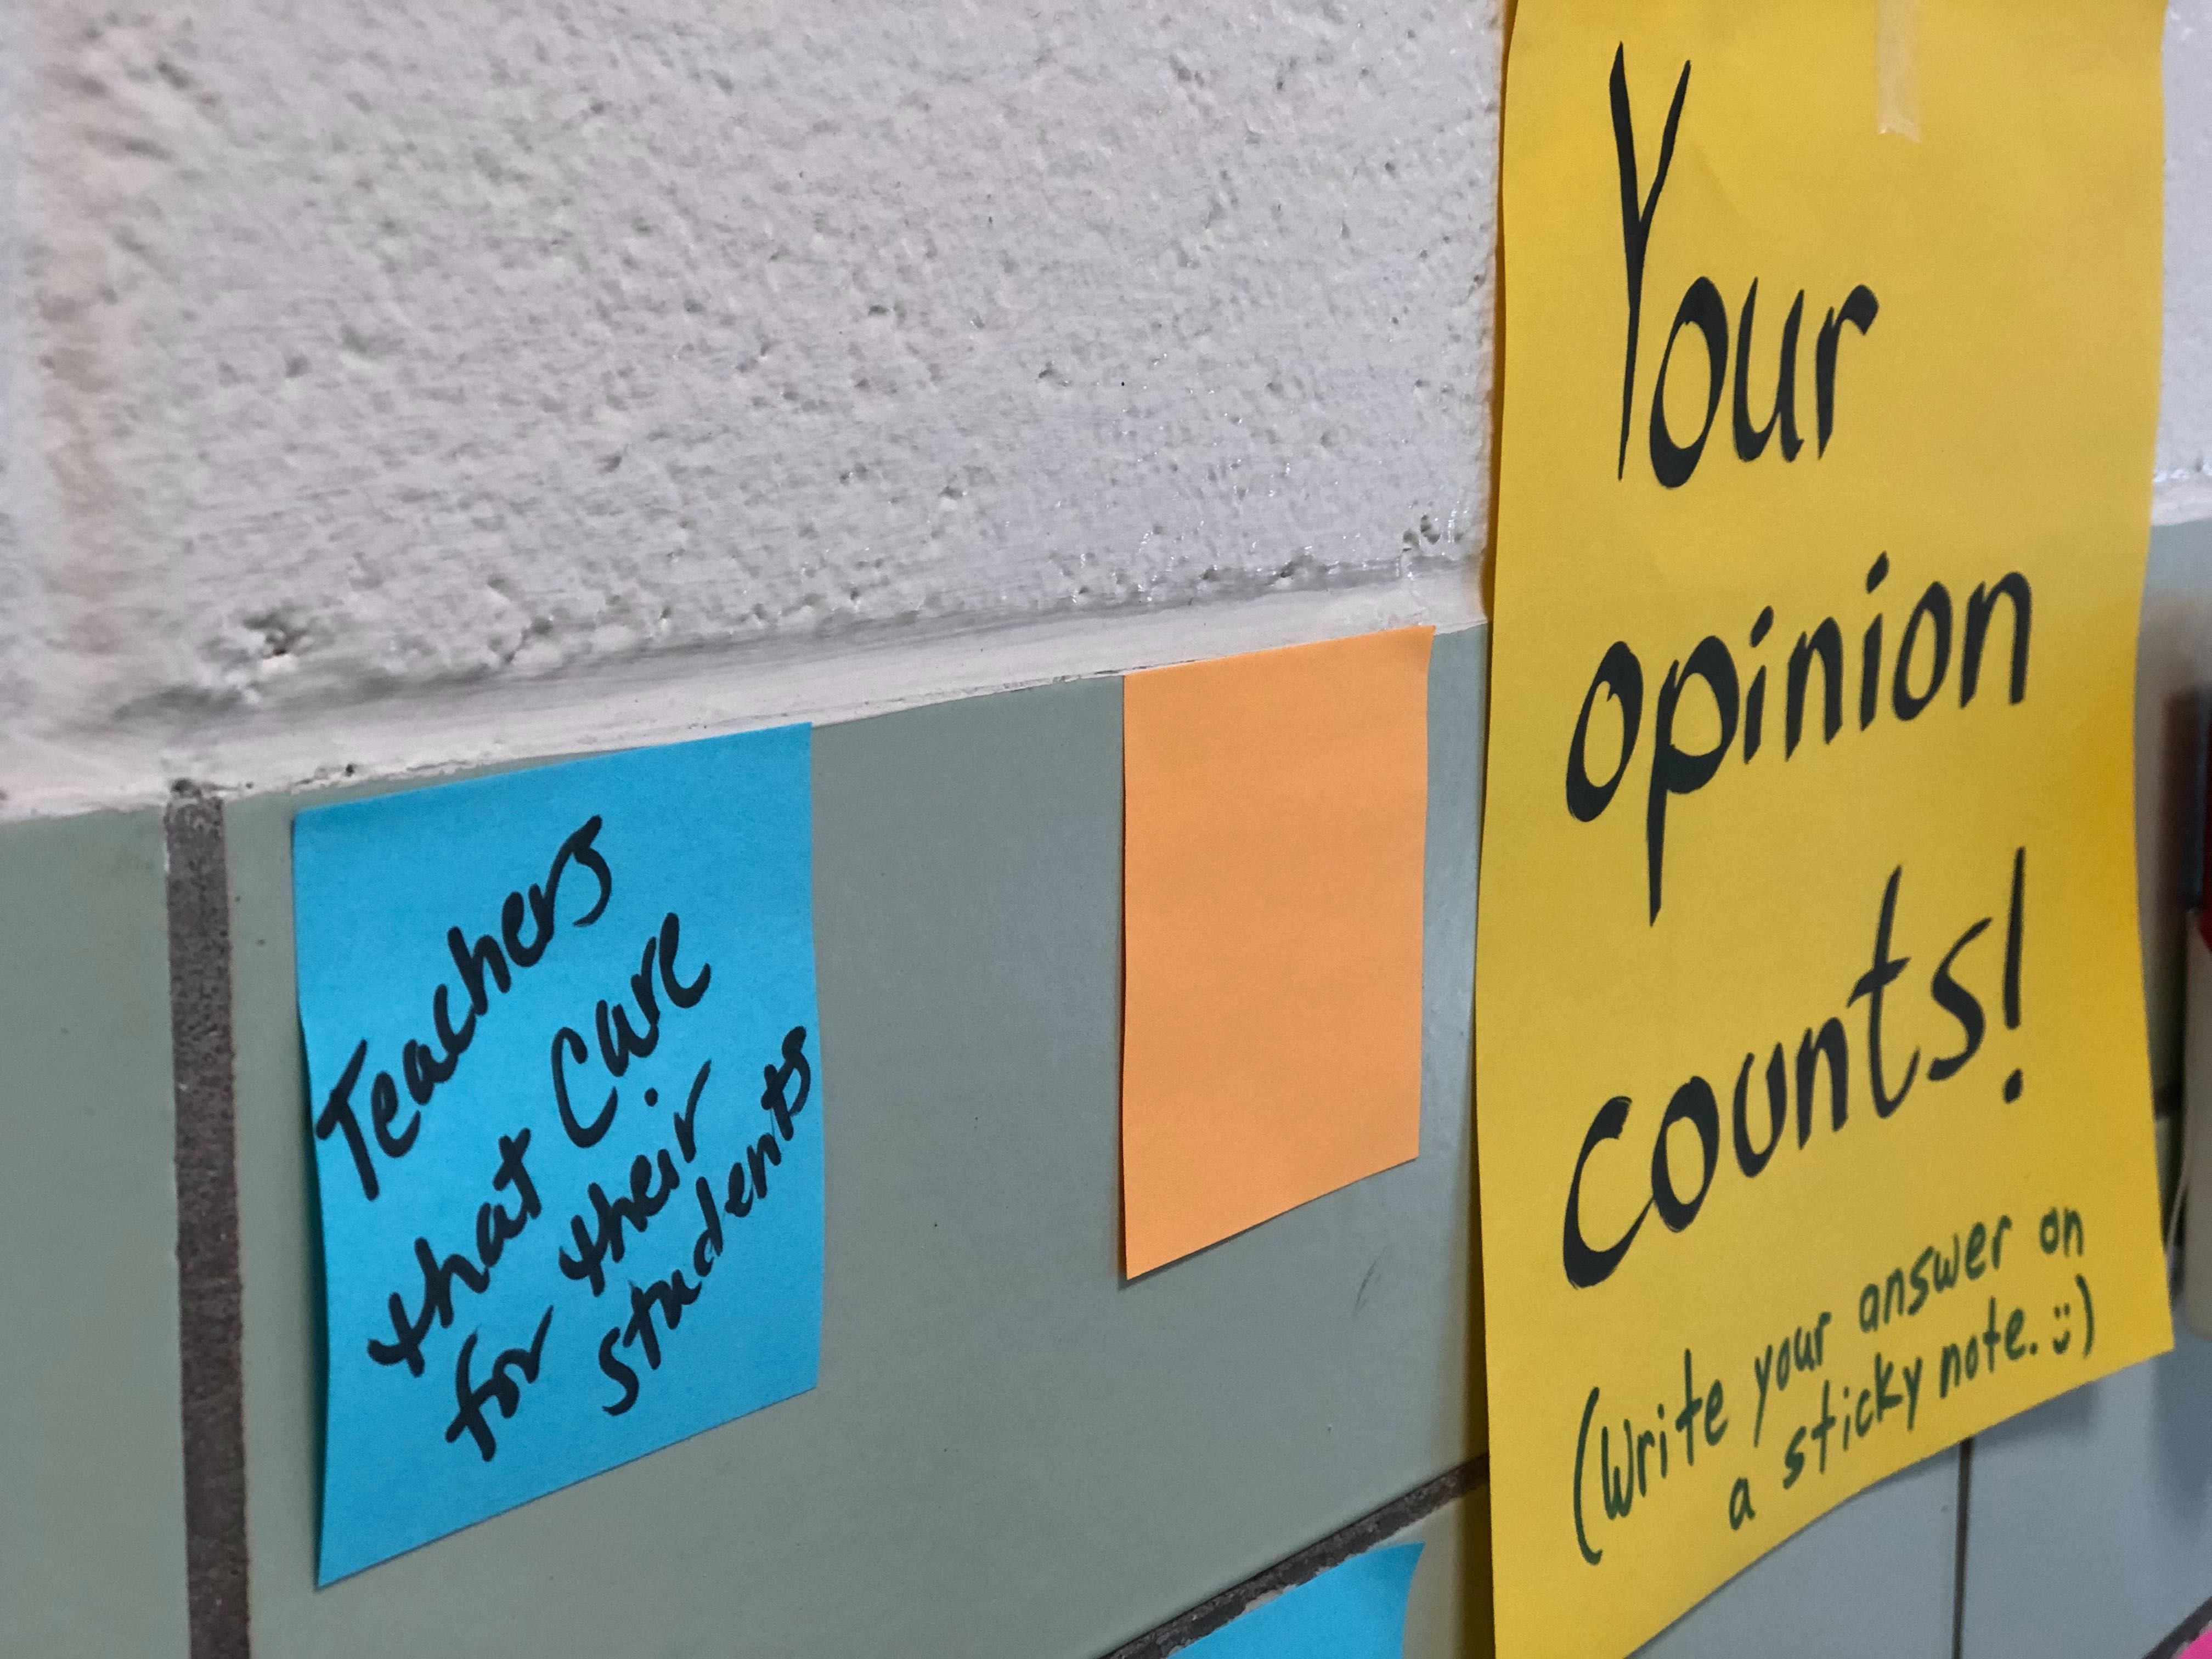 Teachers
that Care
for their
students
Your
opinion
counts!
(Write your answer on
a sticky note. :))